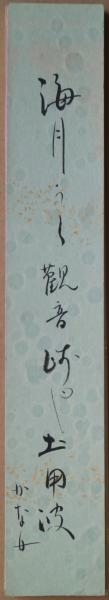 海月うく観音崎の土用波
かな女